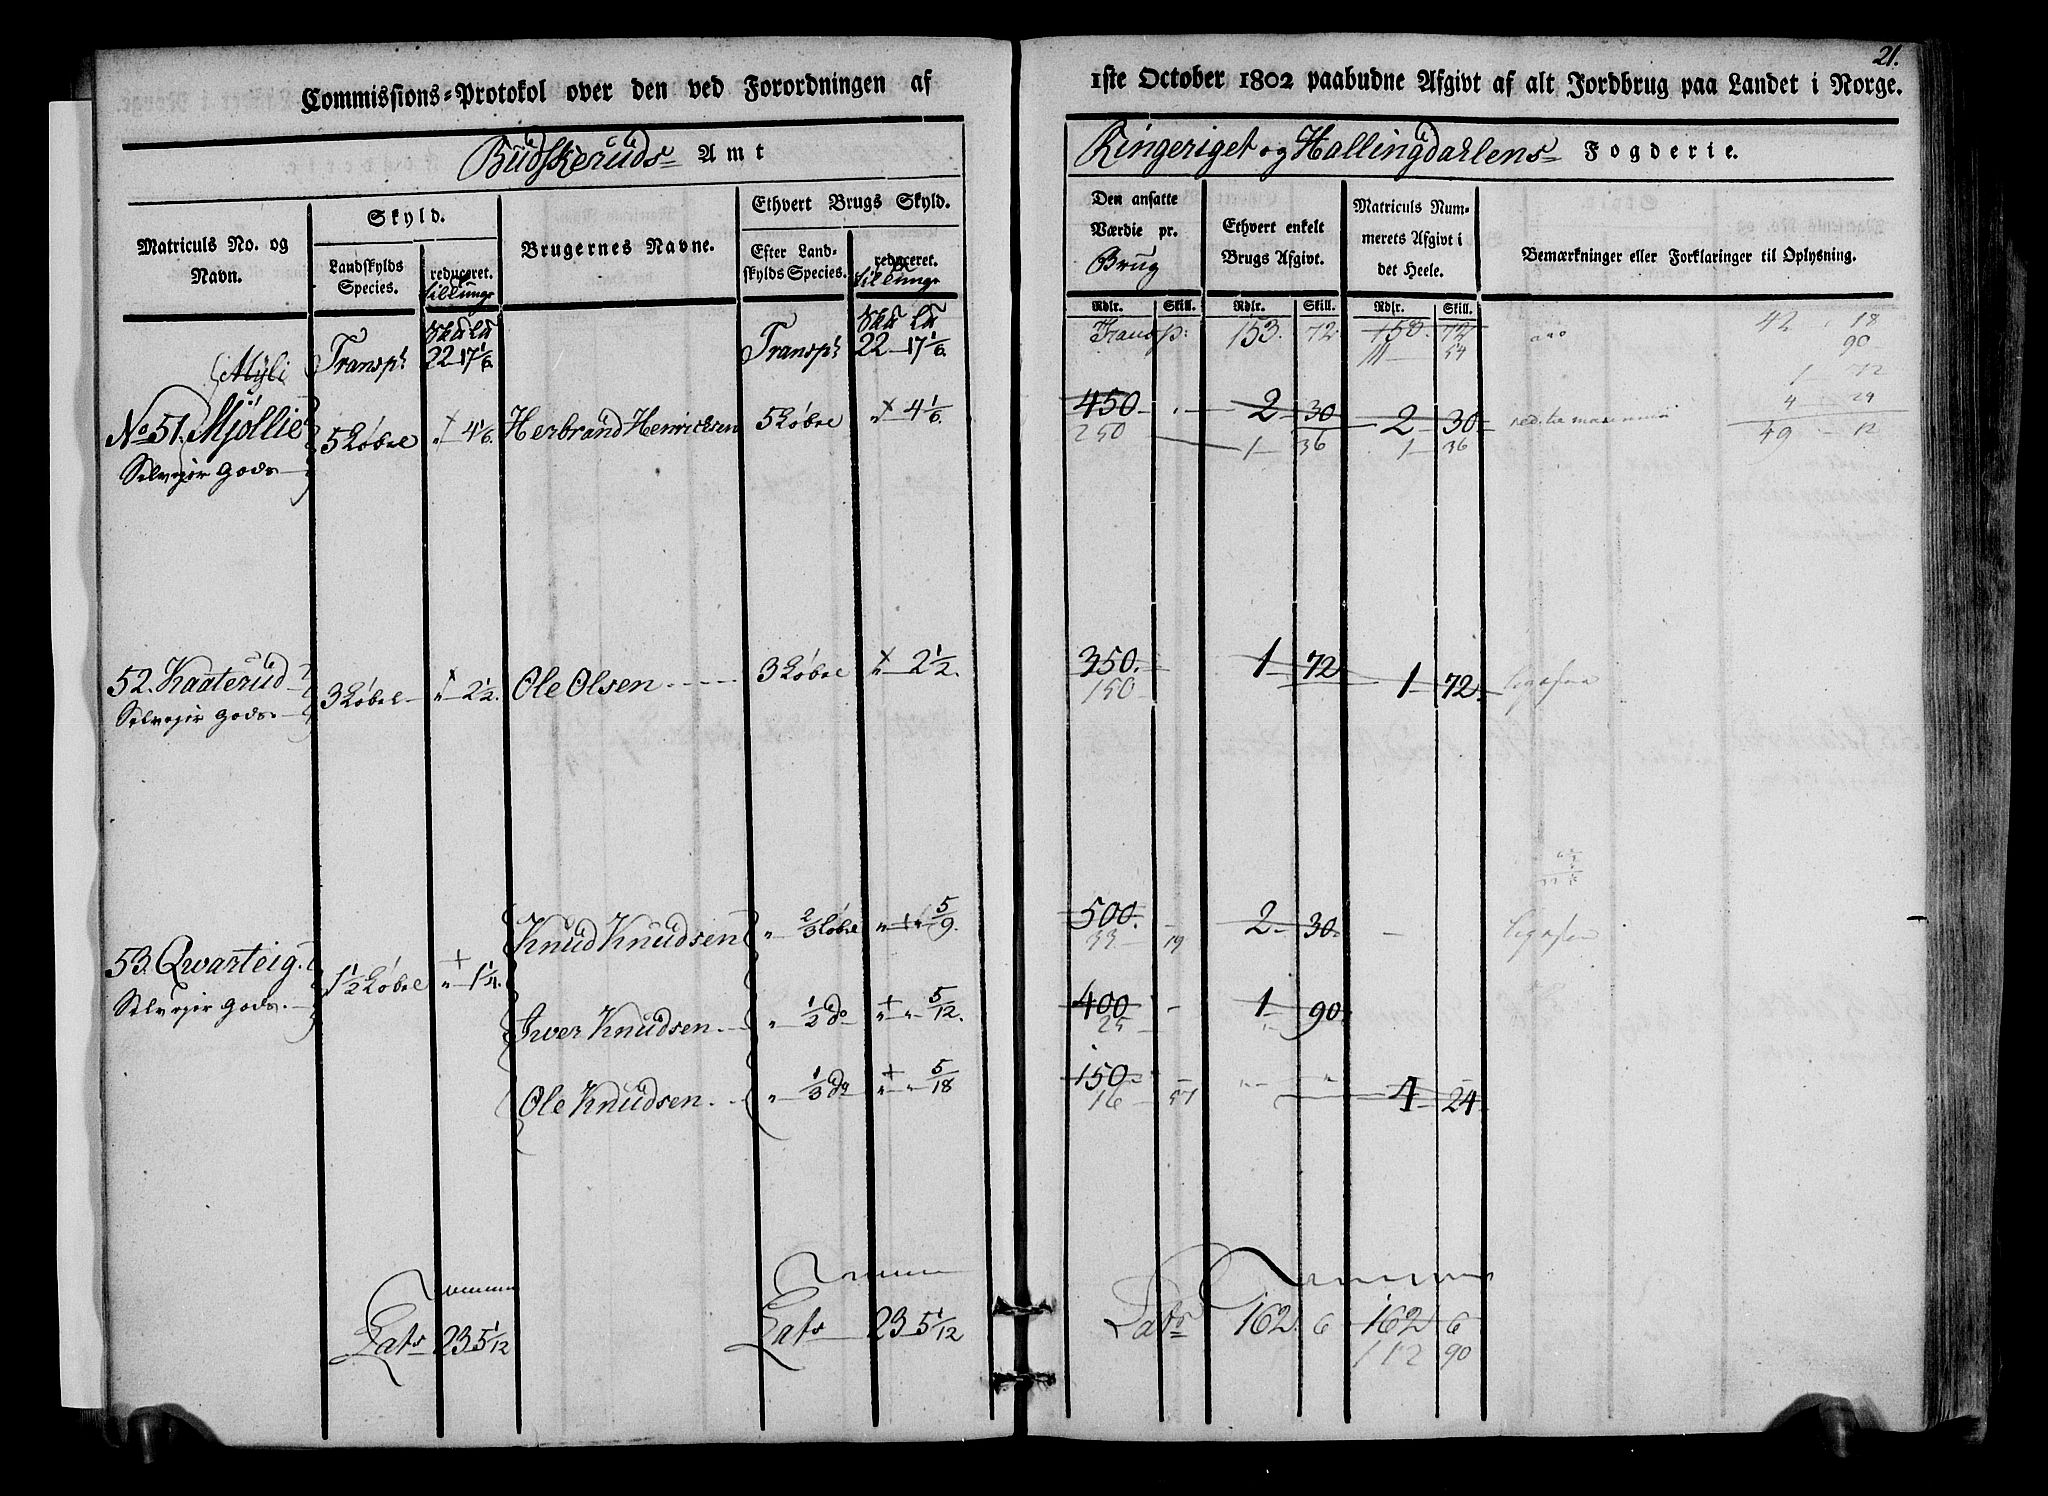 21.
Commissions-Protokol over den ved Forordningen af 1ste October 1802 paabudne Afgivt af alt Jordbrug paa Landet i Norge.
Budskeruds Amt Ringeriget og Hallingdahlens Fogderie.
Matriculs No. og Navn.
Skyld.
Landskylds Species.
reduceret.
Brugernes Navne.
Ethvert Brugs Skyld.
Efter Landskylds Species.
reduceret.
Den ansatte Værdie pr. Brug
Ethvert enkelt Brugs Afgivt.
Matriculs Nummerets Afgivt i det Heele.
Bemærkninger eller Forklaringer til Oplysning.
Rdlr. Skill. Rdlr. Skill. Rdlr. Skill.
Transpt 22 17 1/6 Transpt 22 17 1/6 Transp: 153. 72 150. 72 42 18
111 54 90
Myli 1 12
No 51. Mjøllie 5 Løbe " 4 1/6 Herbrand Henricksen 5 Løbe " 4 1/6 450 2 30 2 30 4 29
Selvejer Gods 250 1 36 1 36 49 12
52. Kaaterud 3 Løbe " 2 1/2. Ole Olsen 3 Løbe " 2 1/2. 350. 1 72 1 72
Selvejer Gods. 150
Knud Knudsen " 2/3 Løbe " " 5/9. 500 2 30
33 19
53. Qvarteig. 1 1/2 Løbe " 1 1/4.
Selvejer Gods.
Iver Knudsen " 1/2 do " " 5/12. 400 1 90
25
Ole Knudsen. " 1/3 do " " 5/18 150 " " 4 24
16 51
Lats 23 5 1/12 Lats 23 5 1/12 Lats 162. 6 162 6
112 90